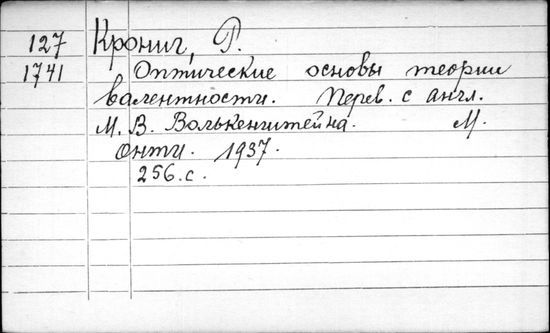 127 Крониг, Р.
1741 Оптические основы теории
валентности. Перев. с англ.
М. В. Волькенштейна. М.
Онти. 1937.
256.с.